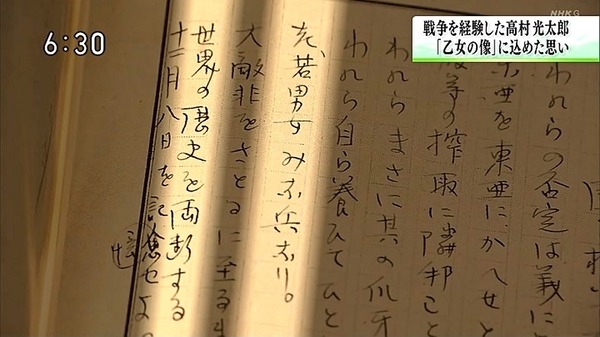 6:30
NHK G
戦争を経験した高村光太郎
「乙女の像」に込めた思い
われらの否定は義に
東亜を東亜にかへせと
彼等の搾取に隣邦こと
われらまさに其の爪牙
われら自ら養ひてひと
老若男女みな兵なり。
大敵非をさとるに至るま
世界の歴史を両断する
十二月八日を記念せよ
憶